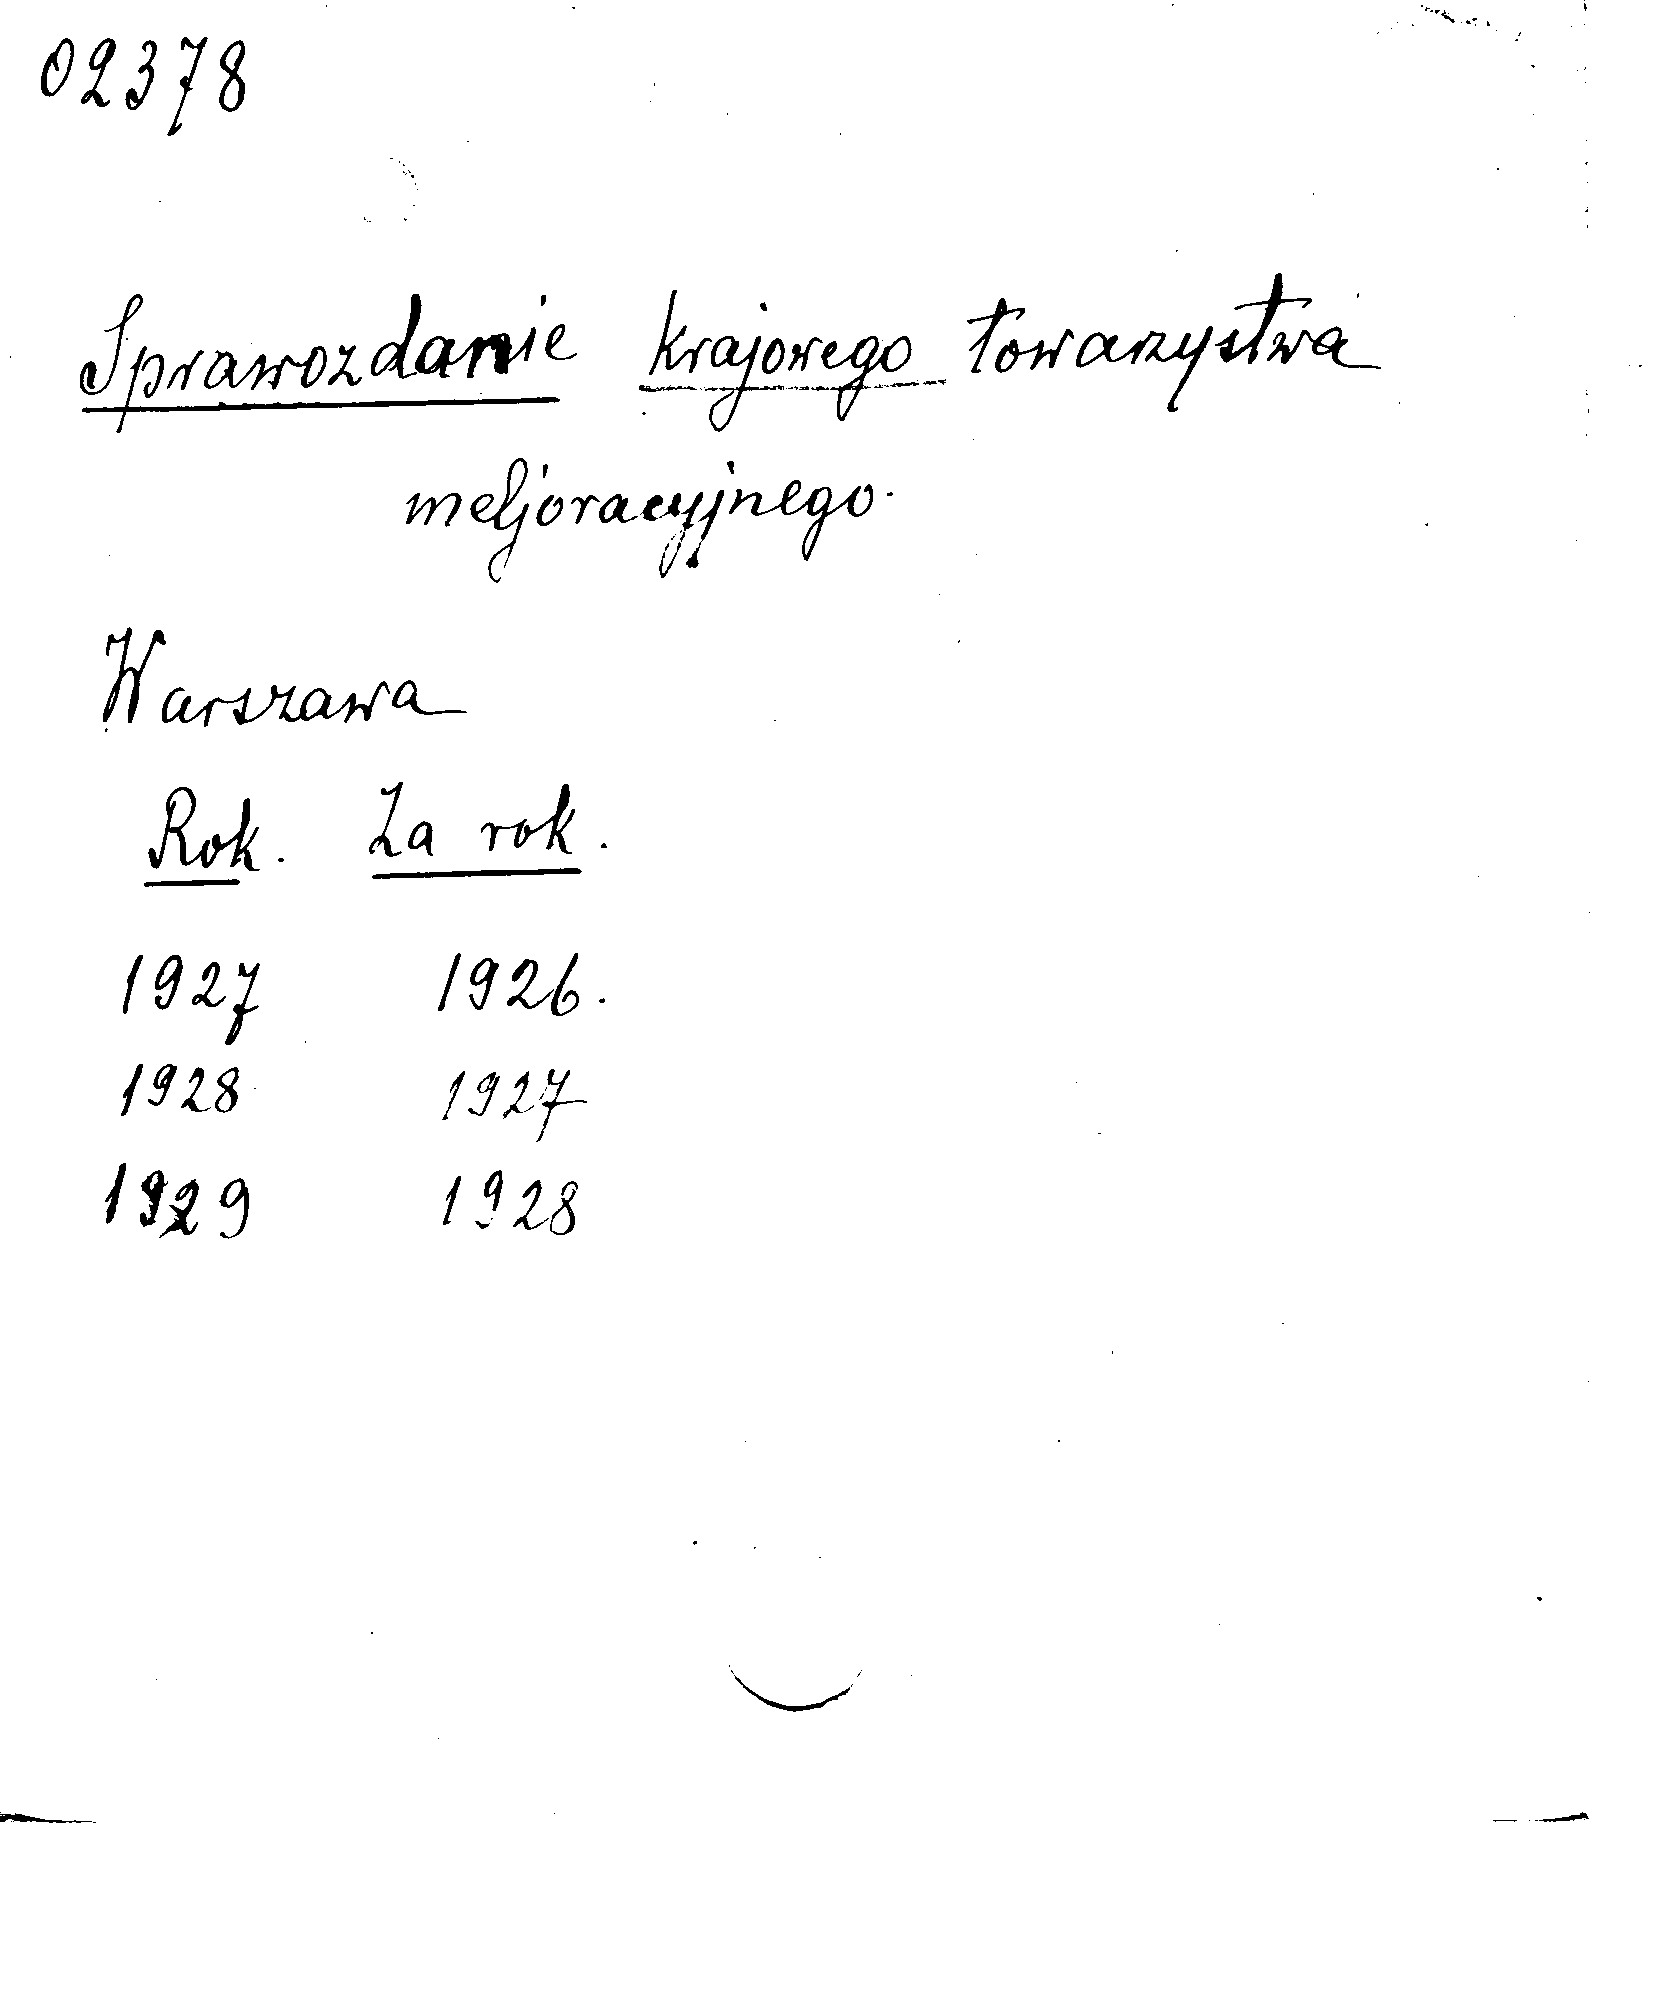 02378
Sprawozdanie krajowego towarzystwa
meljoracyjnego.
Warszawa
Rok. Za rok.
1927 1926.
1928 1927
1929 1928